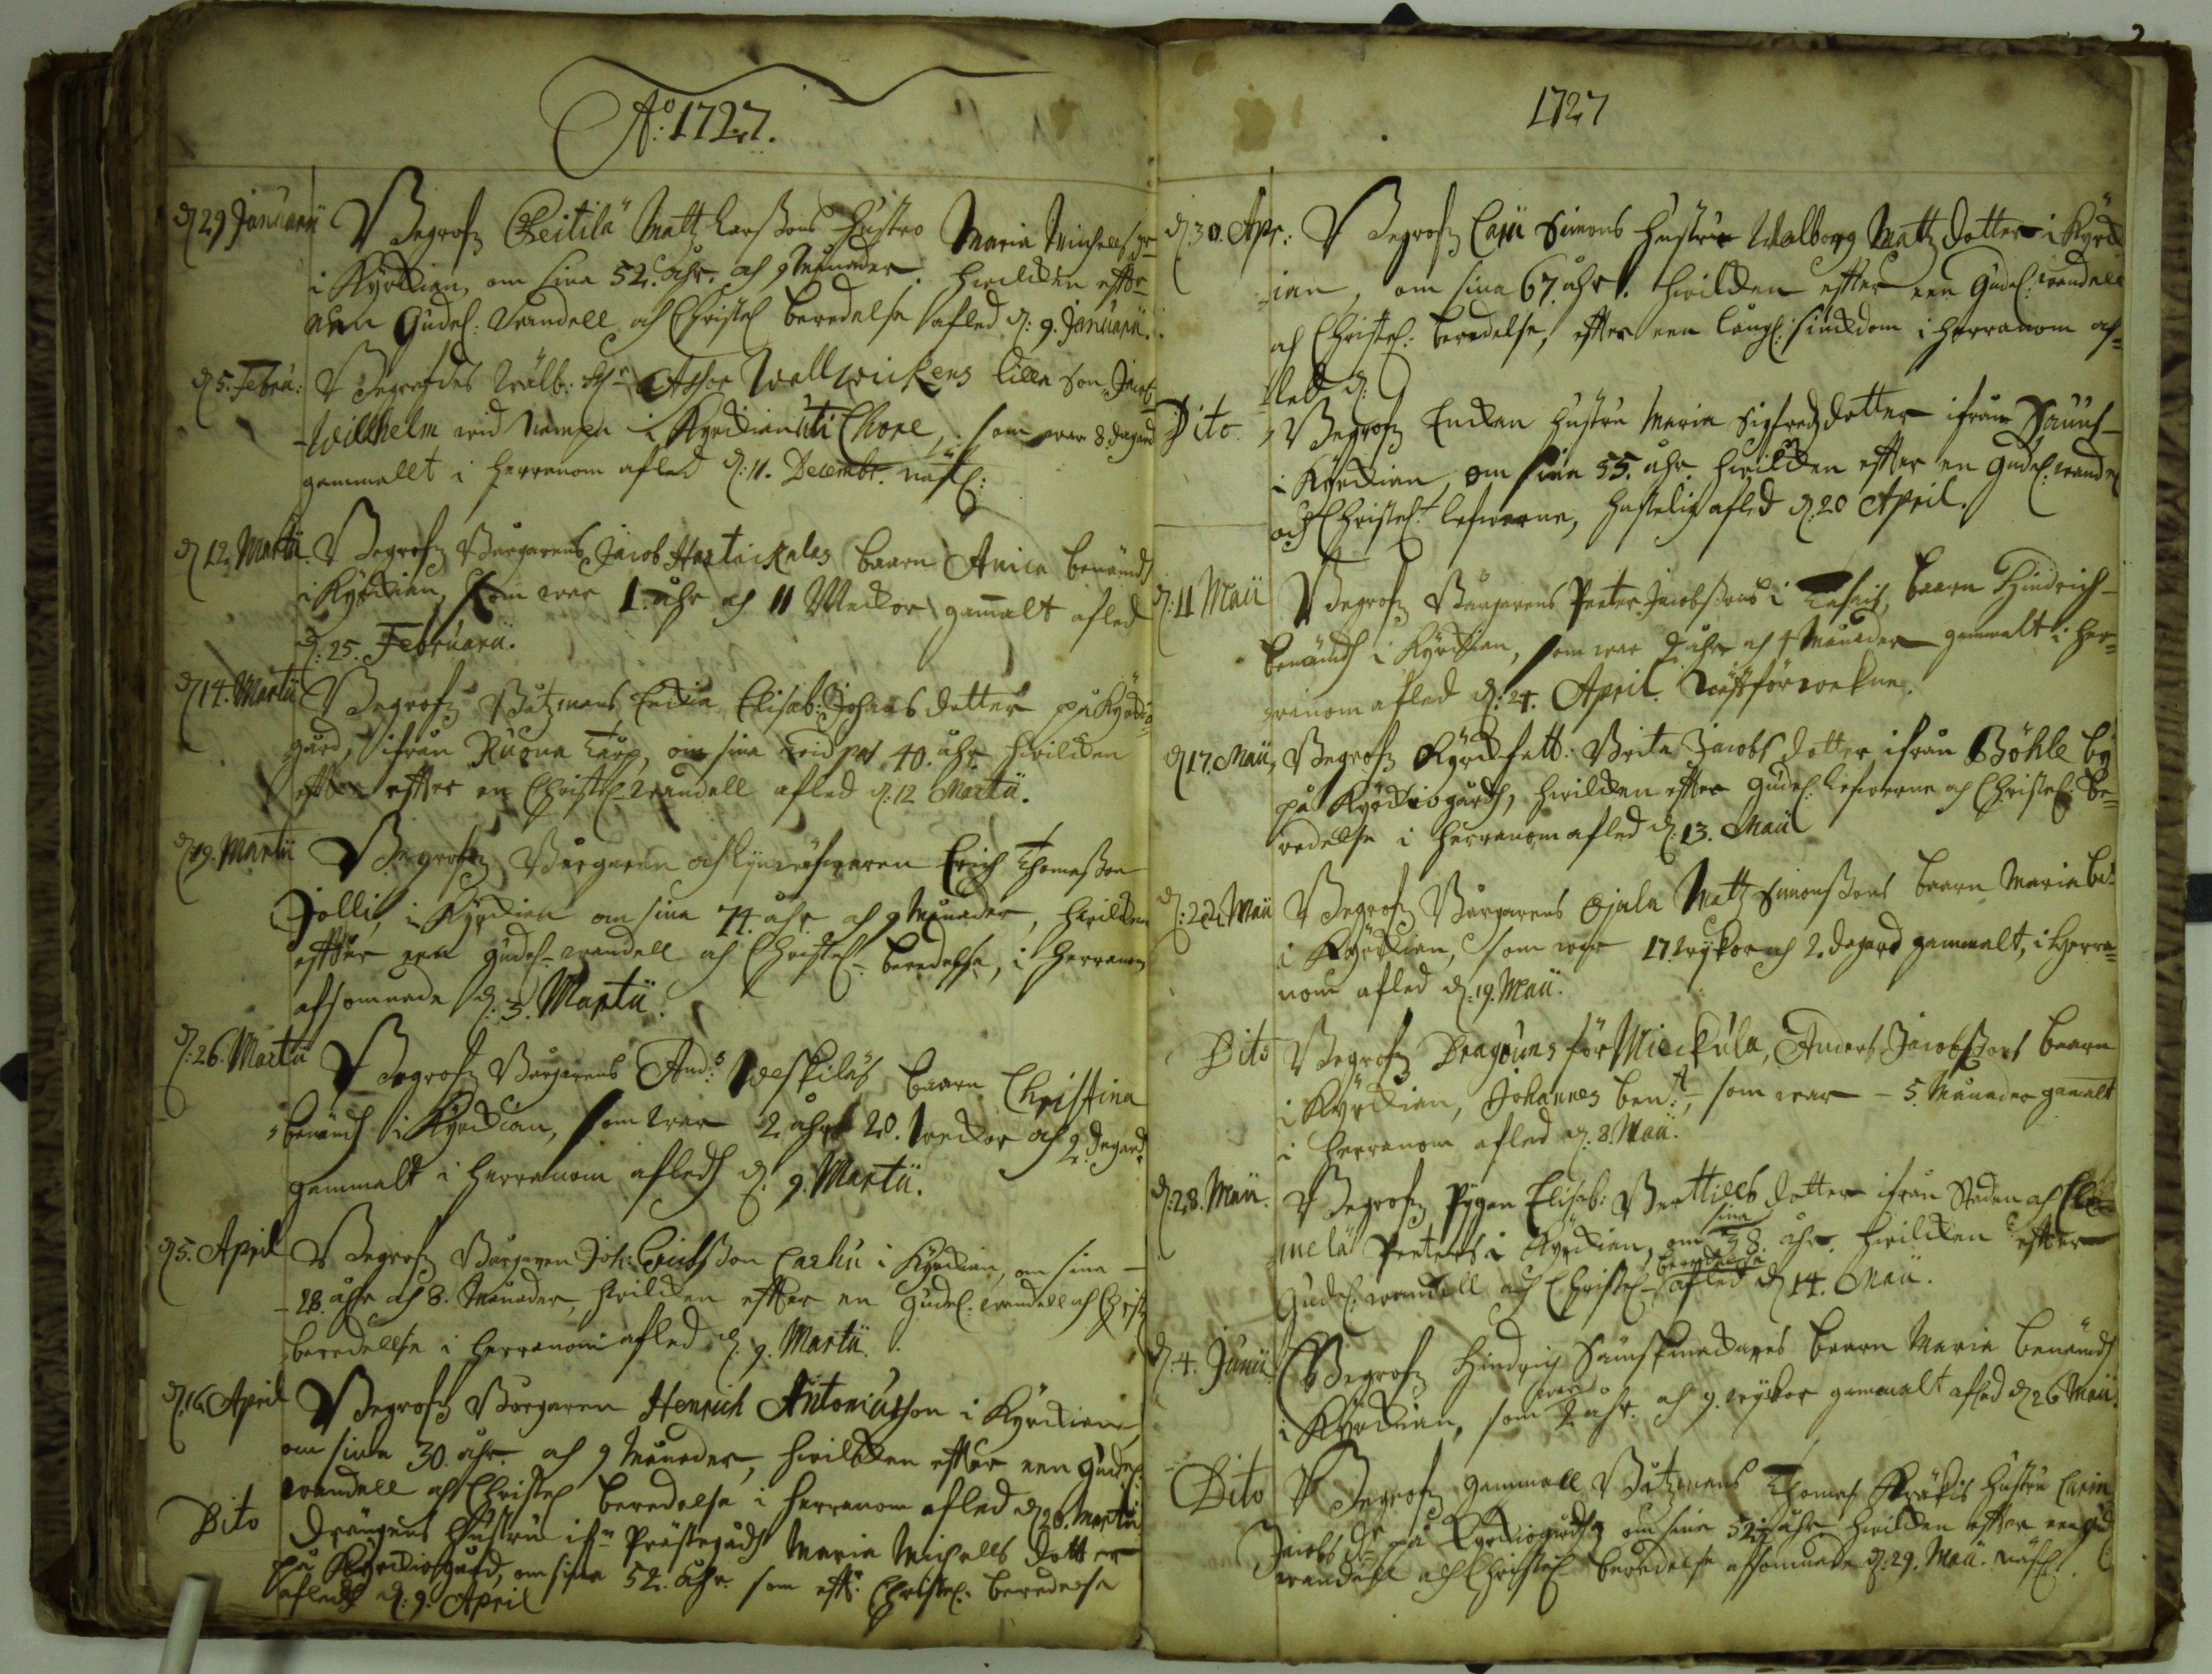 Ao: 1727.
d 29 Januarii Begrofz Peitilä Matz Larssons Hustro Maria Michellsdr
i Kyrckian, om sina 52. åhr. och 9 Månader. hwilcken effter
een Gudel: wandell och Christel beredelse afled d: 9. Januarii.
d 5. Febru: Begrofdes Wälb: Hr Wallwickens lilla Son, Jacob
Willhelm wid Nampn i Kyrckian uti Chore, som war 8. dagar
gammallt i Herranom afled d: 11. Decembr. näste:
d 12 Martii Begrofz Borgarens Jacob Hartickalas baarn Anica benämd
i Kyrckian, som war 1. åhr och 11 Weckor gamalt afled
d: 25. Februarii.
d 14. Martii Begrofz Båtzmans Enckia Elisab: Johans dotter på Kyrckio
gård, ifrån Ruona Torp, om sina wid pas 40. åhr. hwilcken
effter en Christel wandell afled d: 12 Martii.
d 19. Martii Begrofz Borgaren och Erich Thomasson
Jolli, i Kyrckian om sina 74. åhr och 9 Månader, hwilcken
effter een gudel wandell och Christel beredelse, i Herranom
afsomnade d. 3. Martii.
d: 26. Martii Begrofz Borgarens And:s Weskiläs baarn Christina
benämd i Kyrckian, som war 2 åhr 20. Weckor och 2. dagar
gammalt i Herranom afled d. 9. Martii.
d 5. April Begrofz Borgaren Joh: Erichsson Carhu i Kyrckian, om sina
28. åhr och 8. Månader, hwilcken effter en gudel: wandell och Christ
beredellse i Herranom afled d. 9. Martii.
d. 16 April Begrofz Borgaren Henrich Antoniusson i Kyrckian
om sina 30. åhr. och 9 Månader, hwilcken effter een gudel:
wandell och Christel beredelse i Herranom afled d 26. Martii
Dito Drängens Hustru ifn Prästegårdh Maria Michells dotter
på Kyrckiogård, om sina 52. åhr. som efft: Christel: beredelse
afled d: 9. April
1727
d. 30. Apr: Begrofz Caju Simons Hustru Walborg Matz dotter i Kyrck
ian, om sina 67. åhr. hwilcken effter een Gudel: wandell
och Christel: beredelse, effter een långl: siuckdom i Herranom af
led d: 9
Dito. Begrofz Enckan Hustru Maria Sigfredz dotter ifrån
i Kyrckian, om sina 55. åhr hwilcken effter en Gudel. wandel
och Christel: lefwerne, hastelig afled d. 20 April.
d: 11 Maii Begrofz Borgarens Peeter Jacobssons i baarn Hindrich
benämd i Kyrckian, som war 2 åhr och 4 Månader gammalt i Her
ranom afled d: 24. April.
d 17. Maii, Begrofz Kyrckfatt: Brita Jacobs dotter, ifrån Böhle by
på Kyrckiogårdh, hwilcken effter gudel: lefwerne och Christel: be
redellse i Herranom afled d. 13. Maii
d: 22. Maii Begrofz Borgarens Ojala Matz Simonssons baarn Maria be:
i Kyrckian, som war 17. wyckor och 2. dagar gammalt, i Herra
nom afled d. 19. Maii.
Dito Begrofz Dragouns för Mickula, Anders Jacobssons baarn
i Kyrckian, Johannes ben:d, som war 5. Månader gamalt
i Herranom afled d: 8. Maii.
d: 28. Maii. Begrofz Pygan Elisab: Berttills dotter ifrån Staden och
melä Peeters i Kyrckian, om sina 58. åhr. hwilcken effter
Gudel: wandell och Christel beredelse afled d 14. Maii.
d: 4. Junii Begrofz Hindrich Sämskmackares baarn Maria benämd
i Kyrckian, som war 2 åhr. och 9. wyckor gammalt afled d 26 Maii.
Dito Begrofz gammall Båtzmans Thomas Kräkis Hustru Carin
Jacobs dr på Kyrckiogårdh om sina 52 åhr. hwilcken effter een gud
wandell och Christel beredelse afsomnade d: 29. Maii näste.